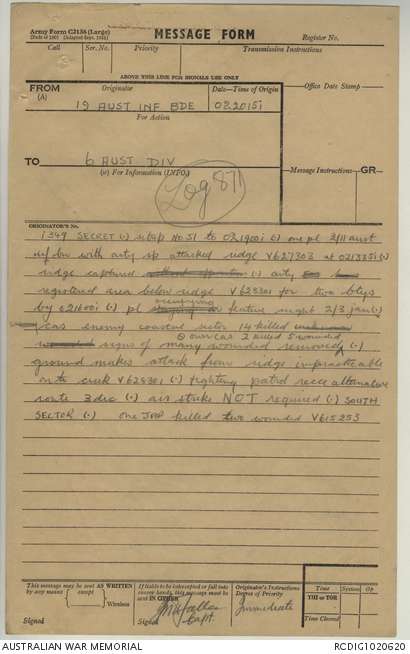 Army Form C2136 (Large)
MESSAGE FORM
Register No.
Call
Ser. No.
Priority
Transmission Instructions
ABOVE THIS LINE FOR SIGNALS USE ONLY
FROM
(A)
Originator
Date—Time of Origin
Office Date Stamp
19 AUST INF BDE
022015I
For Action
TO
6 AUST DIV
(w) For Information (INFO.)
Message Instructions
GR
Log 871
ORIGINATOR'S No.
1349 SECRET (.) sitrep No 51 to 021900I (.) one pl 2/11 aust
inf bn with arty sp attacked ridge V627303 at 021325I (.)
ridge captured (.) arty
registered area below ridge V628301 for two btys
by 021600I (.) pl occupying feature night 2/3 jan (.)
cas enemy coastal sector 14 killed
own cas 2 killed 5 wounded
signs of many wounded removed (.)
ground makes attack from ridge impracticable
onto creek V628301 (.) fighting patrol recce alternative
route 3 dec (.) air strike NOT required (.) SOUTH
SECTOR (.) one JAP killed two wounded V615253
This message may be sent AS WRITTEN
by any means (except) Wireless
If liable to be intercepted or fall into
enemy hands, this message must be
sent IN CIPHER
Originator's Instructions
Degree of Priority
Immediate
Time
System
Op
THI or TOR
Time Cleared
Signed
Signed
Capt.
AUSTRALIAN WAR MEMORIAL
RCDIG1020620